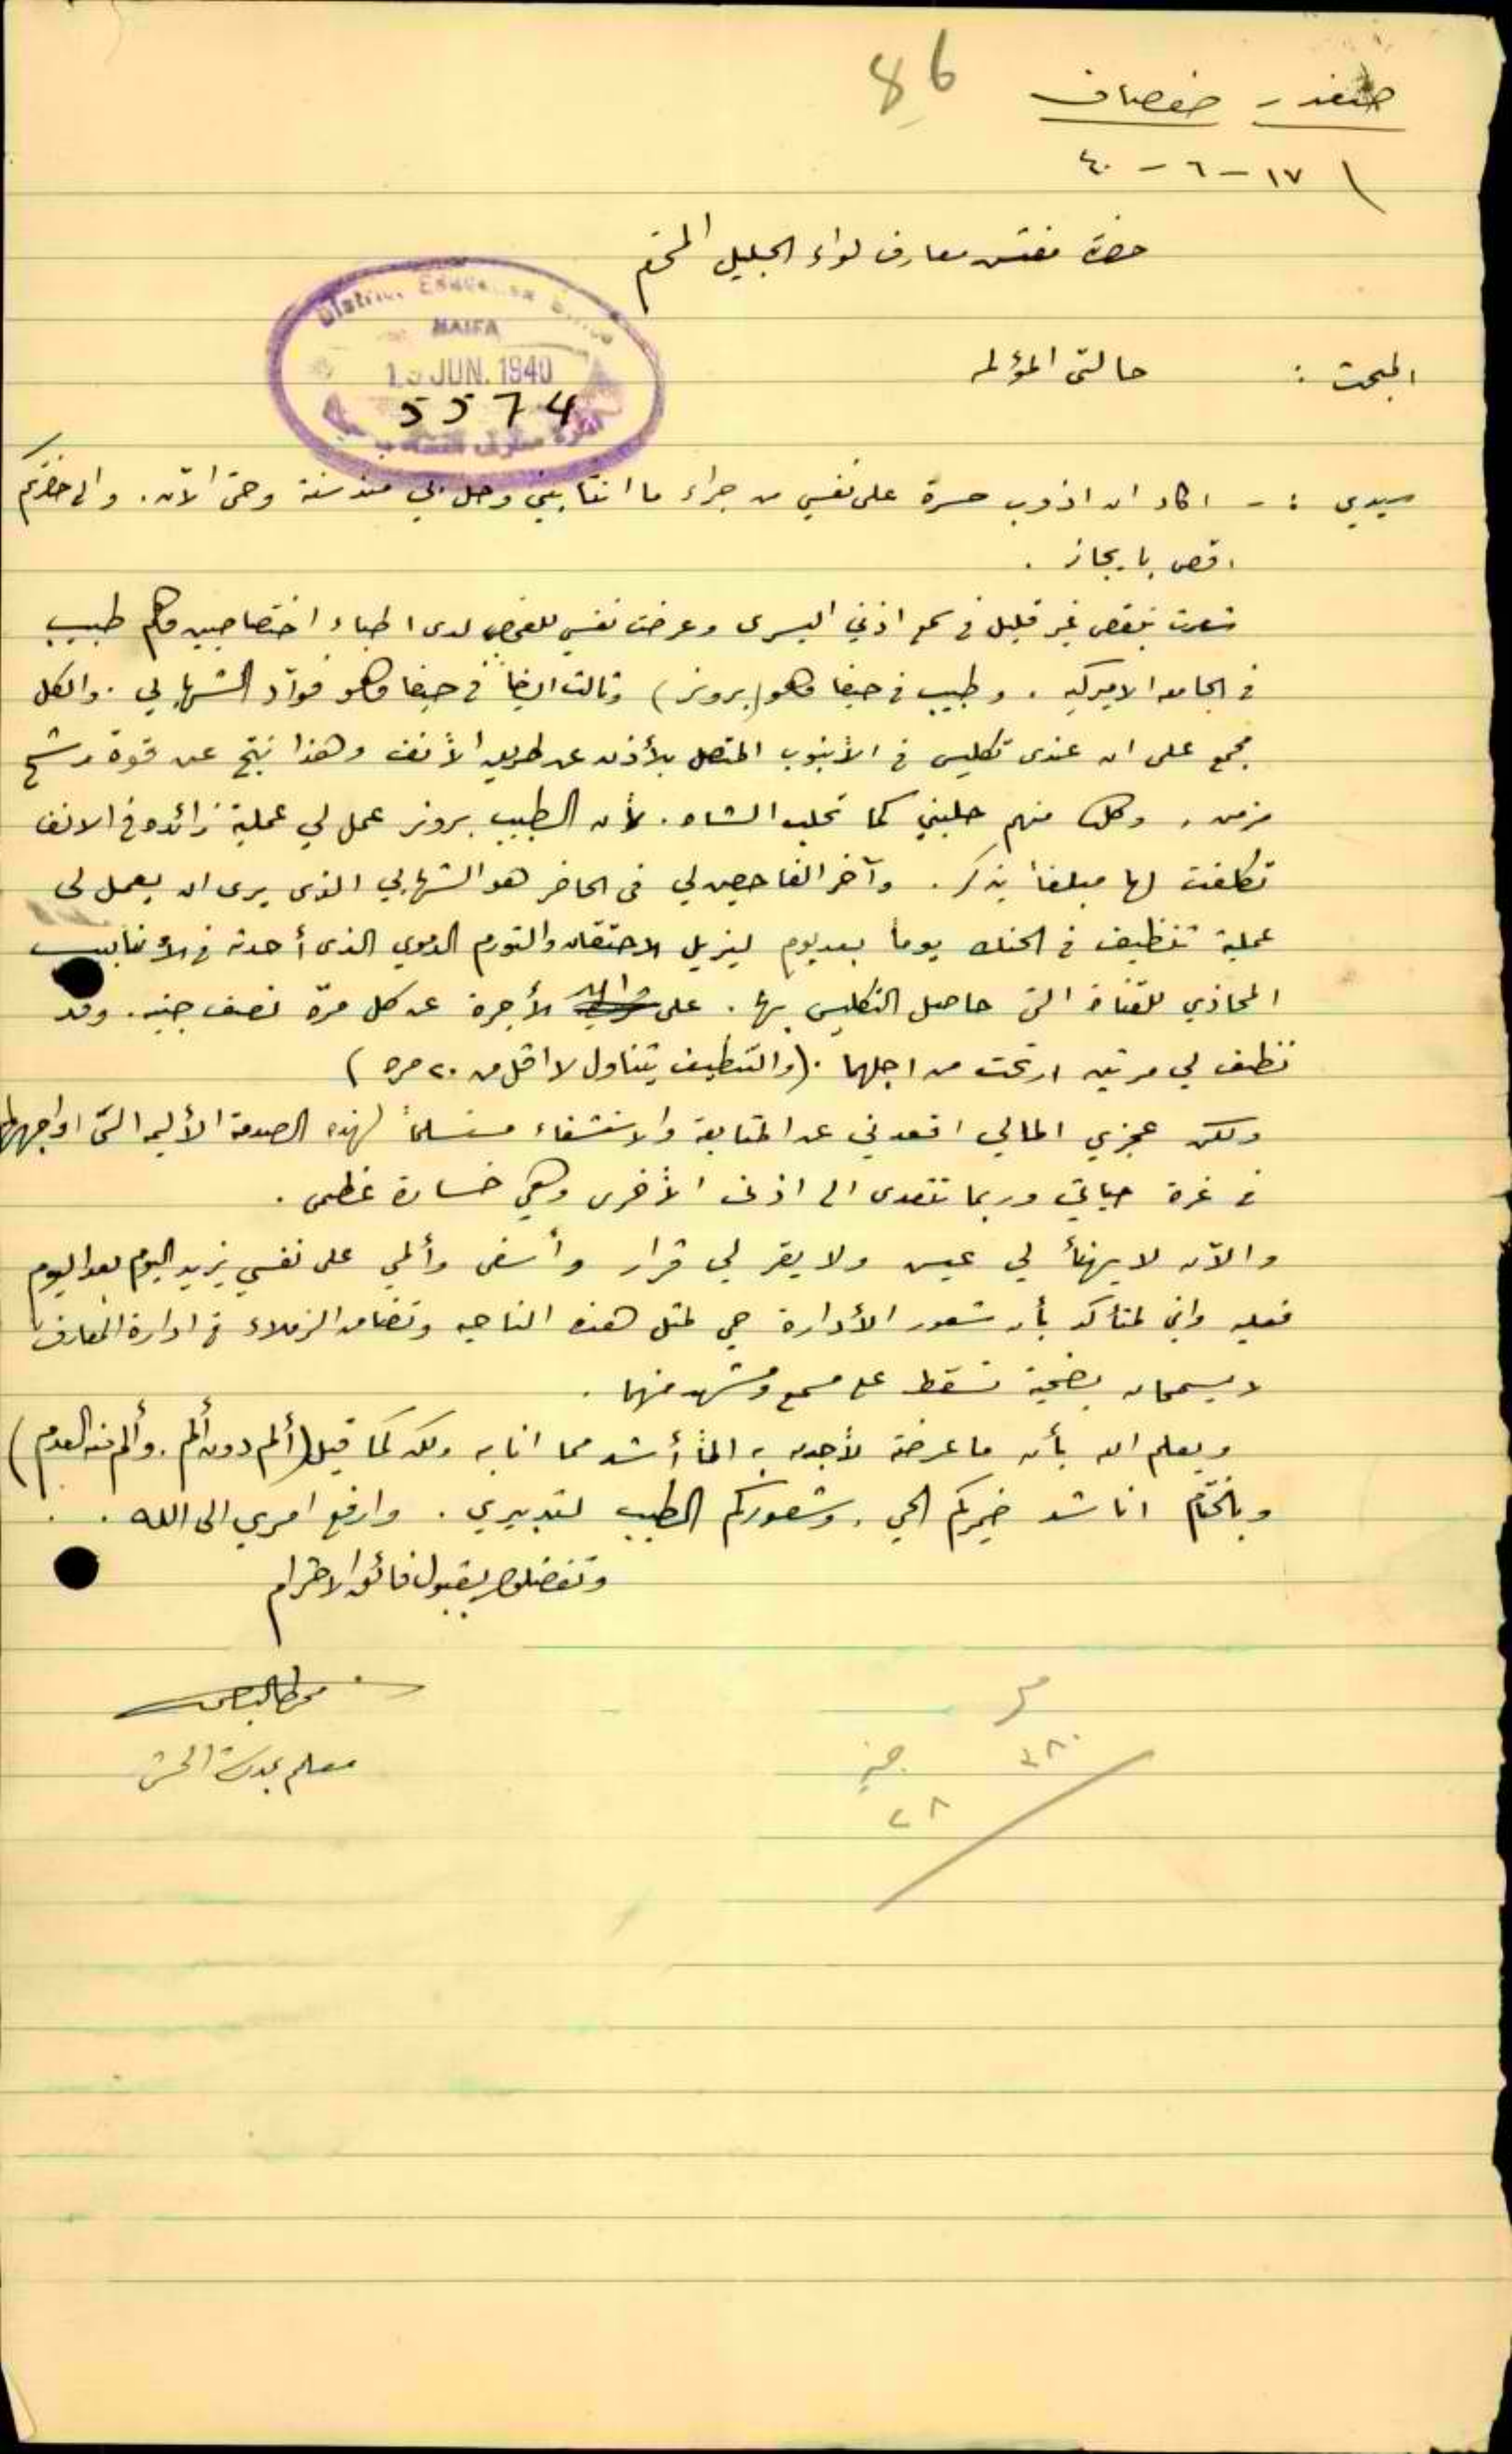 86
صفد - صفصاف
١٧ - ٦ - ٤٠
حضرة مفتش معارف لواء الجليل المحترم
District Education Office
HAIFA
JUN. 1940
5574
المبحث : حالتي المؤلمه
سيدي : - اكاد ان اذوب حسرة على نفسي من جراء ما انتابني وحل بي منذ سنة وحتى الآن . والى حضرتكم
اقص بايجاز .
شعرت بنقص غير قليل في سمع اذني اليسرى وعرضت نفسي للفحص لدى اطباء اختصاصيين وهم طبيب
في الجامعه الاميركيه . وطبيب في حيفا وهو (برونر) وثالث ايضاً في حيفا وهو فوآد الشهابي . والكل
مجمع على ان عندى تكليس في الأنبوب المتصل بالأذن عن طريق الأنف وهذا نتج عن قوة رشح
مزمن . وكل منهم حلبني كما تحلب الشاه . لأن الطبيب برونر عمل لي عملية زائده في الانف
تكلفت لها مبلغاً يذكر . وآخر الفاحصين لي في الحاضر هو الشهابي الذى يرى ان يعمل لى
عملية تنظيف في الحنك يوماً بعد يوم ليزيل الاحتقان والتورم الدموي الذى أحدثه في الأنابيب
المحاذي للقناة التي حاصل التكليس بها . على الأجرة عن كل مرّة نصف جنيه . وقد
نظف لي مرتين ارتحت من اجلهما . (والتنظيف يتناول لا اقل من ٢٠ مره)
ولكن عجزي المالي اقعدني عن المتابعة والاستشفاء مستسلماً لهذه الصدمة الأليمه التي اواجهها
في غرة حياتي وربما تتعدى الى اذني الأخرى وهي خسارة عظمى .
والآن لا يهنأ لي عيش ولا يقر لي قرار وأسفى وألمي على نفسي يزيد اليوم بعد اليوم
فعليه واني لمتأكد بأن شعور الأدارة حي لمثل هذه الناحيه وتضامن الزملاء في ادارة المعارف
لا يسمحان بضحية تسقط على مسمع ومشهد منهما .
ويعلم الله بأن ما عرضته لأجد به الماً أشد مما انا به ولكن كما قيل (ألم دون ألم . وألم منه العدم)
وبالختام اناشد ضميركم الحي . وشعوركم الطيب لتدبيري . وارفع امري الى الله .
وتفضلوا بقبول فائق الاحترام
معلم بمدرسة الجش
٣٨٠
جنيه
٢٨